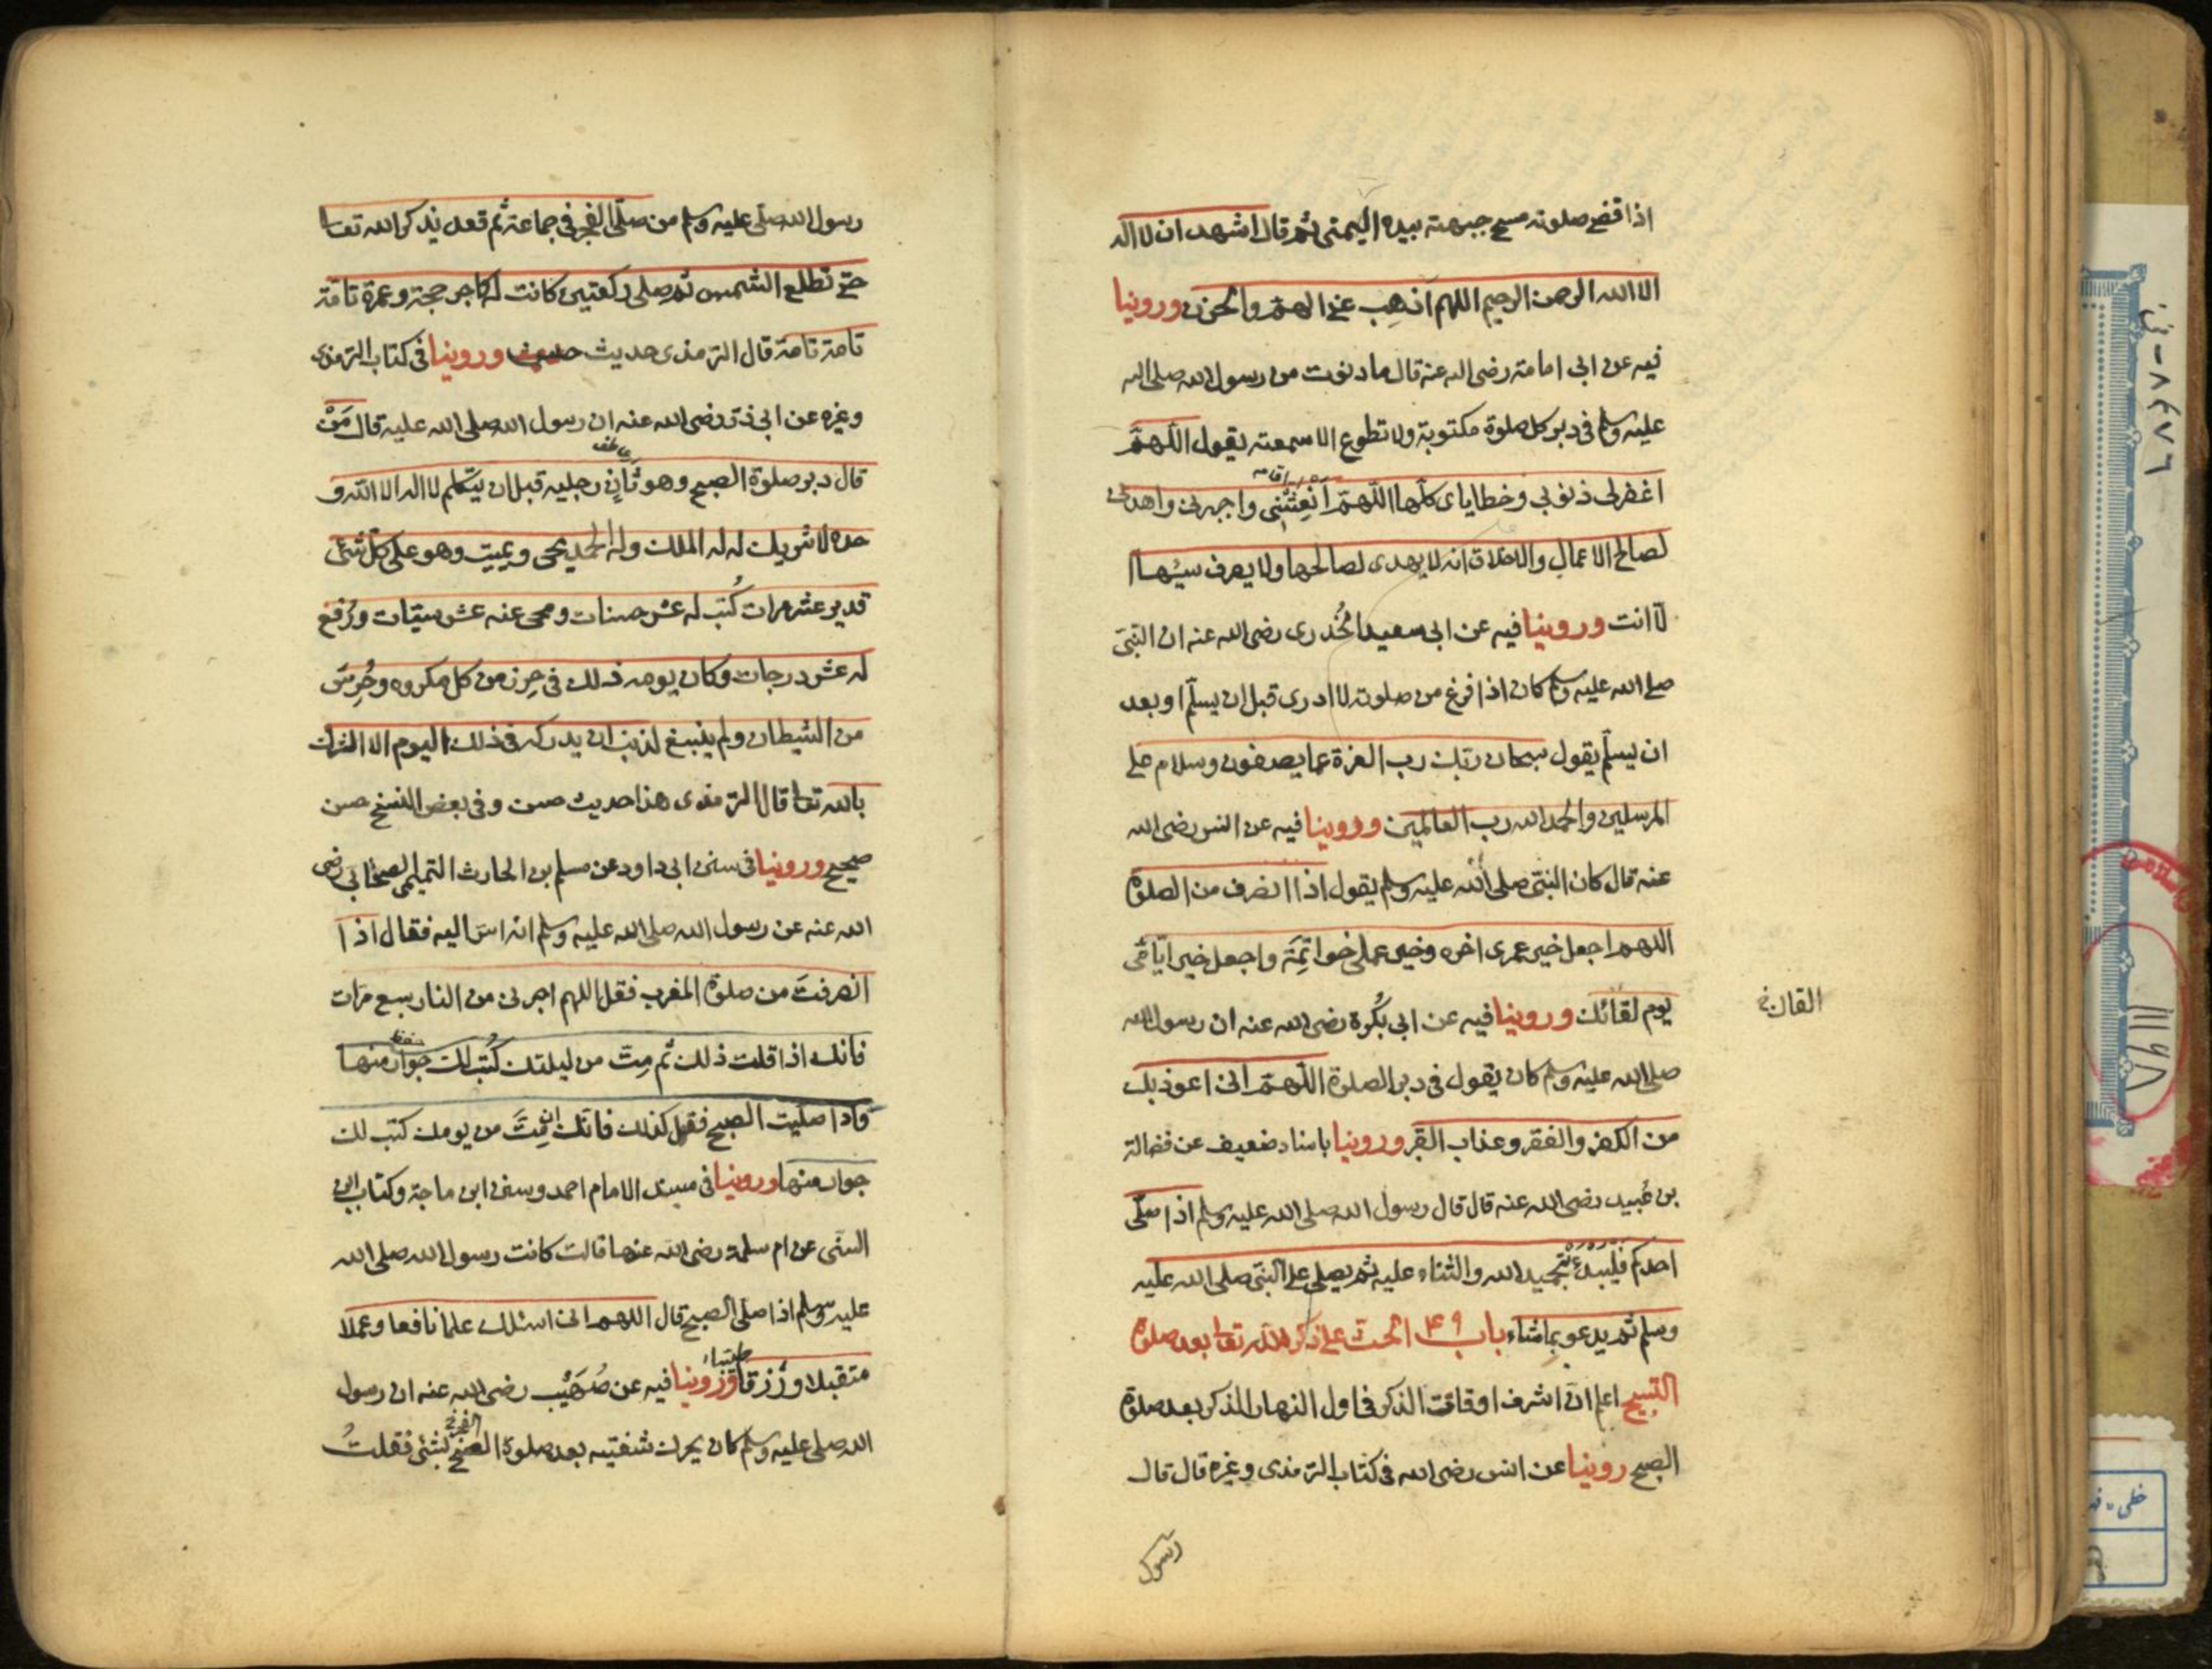 اذا قضى صلوته مسح جبهته بيده اليمنى ثم قال اشهد ان لا اله
الا الله الرحمن الرحيم اللهم اذهب عني الهم والحزن وروينا
فيه عن ابي امامة رضى الله عنه قال ما دنوت من رسول الله صلى الله
عليه وسلم في دبر كل صلوة مكتوبة ولا تطوع الا سمعته يقول اللهم
اغفر لى ذنوبي وخطاياى كلها اللهم انعشني واجبرني واهدنى
لصالح الاعمال والاخلاق انه لا يهدى لصالحها ولا يصرف سيئها ا
لا انت وروينا فيه عن ابي سعيد الخُدرى رضى الله عنه ان النبي
صلى الله عليه وسلم كان اذا فرغ من صلوته لا ادرى قبل ان يسلّم او بعد
ان يسلّم يقول سبحان ربك رب العزة عما يصفون وسلام على
المرسلين والحمد لله رب العالمين وروينا فيه عن انس رضى الله
عنه قال كان النبي صلى الله عليه وسلم يقول اذا انصرف من الصلوة
اللهم اجعل خير عمرى اخره وخير عملى خواتمه واجعل خير ايامى
يوم لقائك وروينا فيه عن ابي بكرة رضى الله عنه ان رسول الله
القاك خ
صلى الله عليه وسلم كان يقول في دبر الصلوة اللهم انى اعوذ بك
من الكفر والفقر وعذاب القبر وروينا باسناد ضعيف عن فضالة
بن عُبيد رضى الله عنه قال قال رسول الله صلى الله عليه وسلم اذا صلّى
احدكم فليبدء بتحميد الله والثناء عليه ثم يصلى على النبي صلى الله عليه
وسلم ثم يدعو بما شاء باب ٤٩ الحث على ذكر الله تعا بعد صلوة
الصبح اعلم ان اشرف اوقات الذكر في اول النهار الذكر بعد صلوة
الصبح روينا عن انس رضى الله في كتاب الترمذى وغيره قال قال
رسول
رسول الله صلى عليه وسلم من صلّى الفجر في جماعة ثم قعد يذكر الله تعا
حتى تطلع الشمس ثم صلى ركعتين كانت له كاجر حجة وعمرة تامة
تامة تامة قال الترمذى حديث حسن وروينا في كتاب الترمذى
وغيره عن ابي ذر رضى الله عنه ان رسول الله صلى الله عليه قال مَنْ
قال دبر صلوة الصبح وهو ثانٍ رجليه قبل ان يتكلم لا اله الا الله و
حده لا شريك له له الملك وله الحمد يحى ويميت وهو على كل شئ
قدير عشر مرات كُتب له عشر حسنات ومحى عنه عشر سيئات ورُفع
له عشر درجات وكان يومه ذلك في حِرز من كل مكروه وحُرِسَ
من الشيطان ولم ينبغ لذنب ان يدركه في ذلك اليوم الا الشرك
بالله تعا قال الترمذى هذا حديث حسن وفي بعض النسخ حسن
صحيح وروينا في سنن ابى داود عن مسلم بن الحارث التميمى الصحابي رضى
الله عنه عن رسول الله صلى الله عليه وسلم انه اسرّ اليه فقال اذا
انصرفتَ من صلوة المغرب فقل اللهم اجرنى من النار سبع مرات
فانك اذا قلت ذلك ثم مِتَّ من ليلتك كُتب لك جوار منها
واذا صليت الصبح فقل كذلك فانك ان مِتَّ من يومك كتب لك
جوار منها وروينا في مسند الامام احمد وسنن ابن ماجة وكتاب ابن
السنى عن ام سلمة رضى الله عنها قالت كانت رسول الله صلى الله
عليه وسلم اذا صلى الصبح قال اللهم انى اسئلك علما نافعا وعملا
متقبلا ورزقا طيبا وروينا فيه عن صُهَيْب رضى الله عنه ان رسول
الله صلى عليه وسلم كان يحرك شفتيه بعد صلوة الفجر بشئ فقلتُ